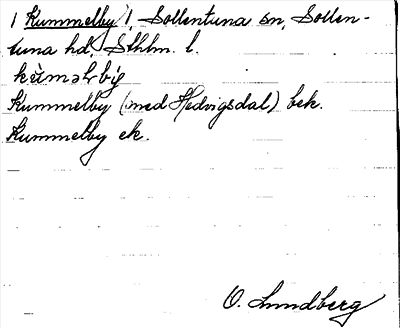 1 Kummelby 1, Sollentuna sn, Sollen-
tuna hd, Sthlm. l.
Kummelby (med Hedvigsdal) bek.
Kummelby ek.
O. Lundberg